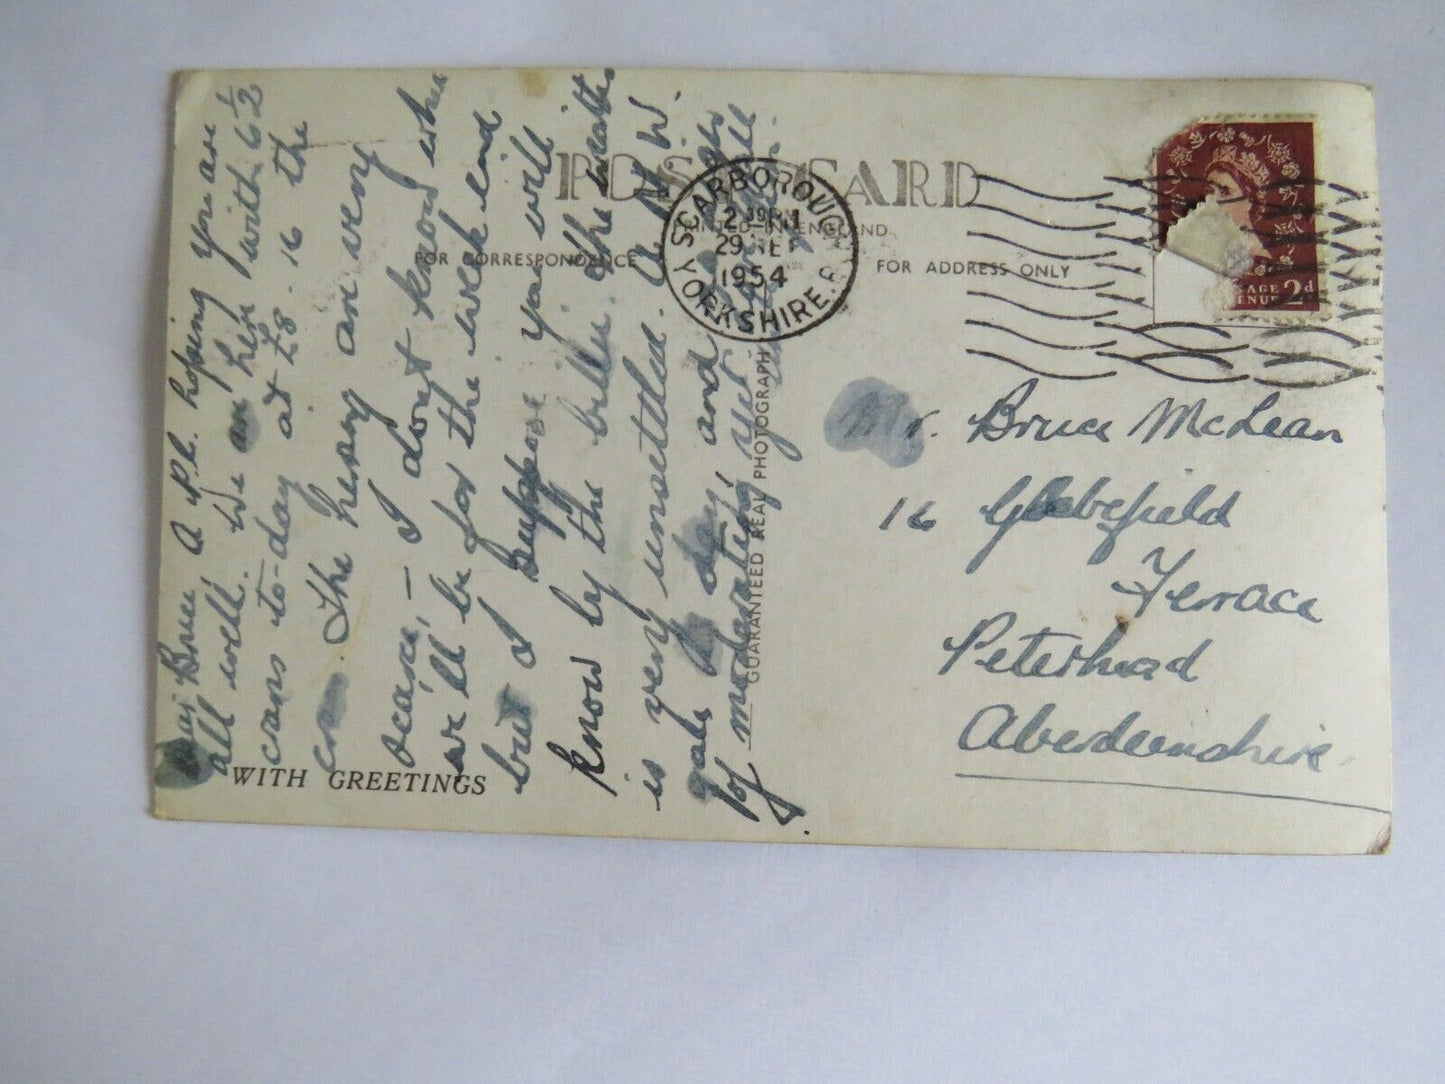 Dear Bruce A P.C. hoping you are
all well. We are here with 6½
crans to-day at £8. 16 the
cran. The hering are very
scarce, – I don't know when
we'll be for the week end
but I suppose you will
know by the bille. The weather
is very unsettled. A N.W.
gale to day, and no sign
of moderating yet
POST CARD
PRINTED IN ENGLAND
FOR CORRESPONDENCE
FOR ADDRESS ONLY
SCARBOROUGH
YORKSHIRE.
29 SEP
1954
2d
Mr. Bruce McLean
16 Glebefield
Terrace
Peterhead
Aberdeenshire.
GUARANTEED REAL PHOTOGRAPH
WITH GREETINGS